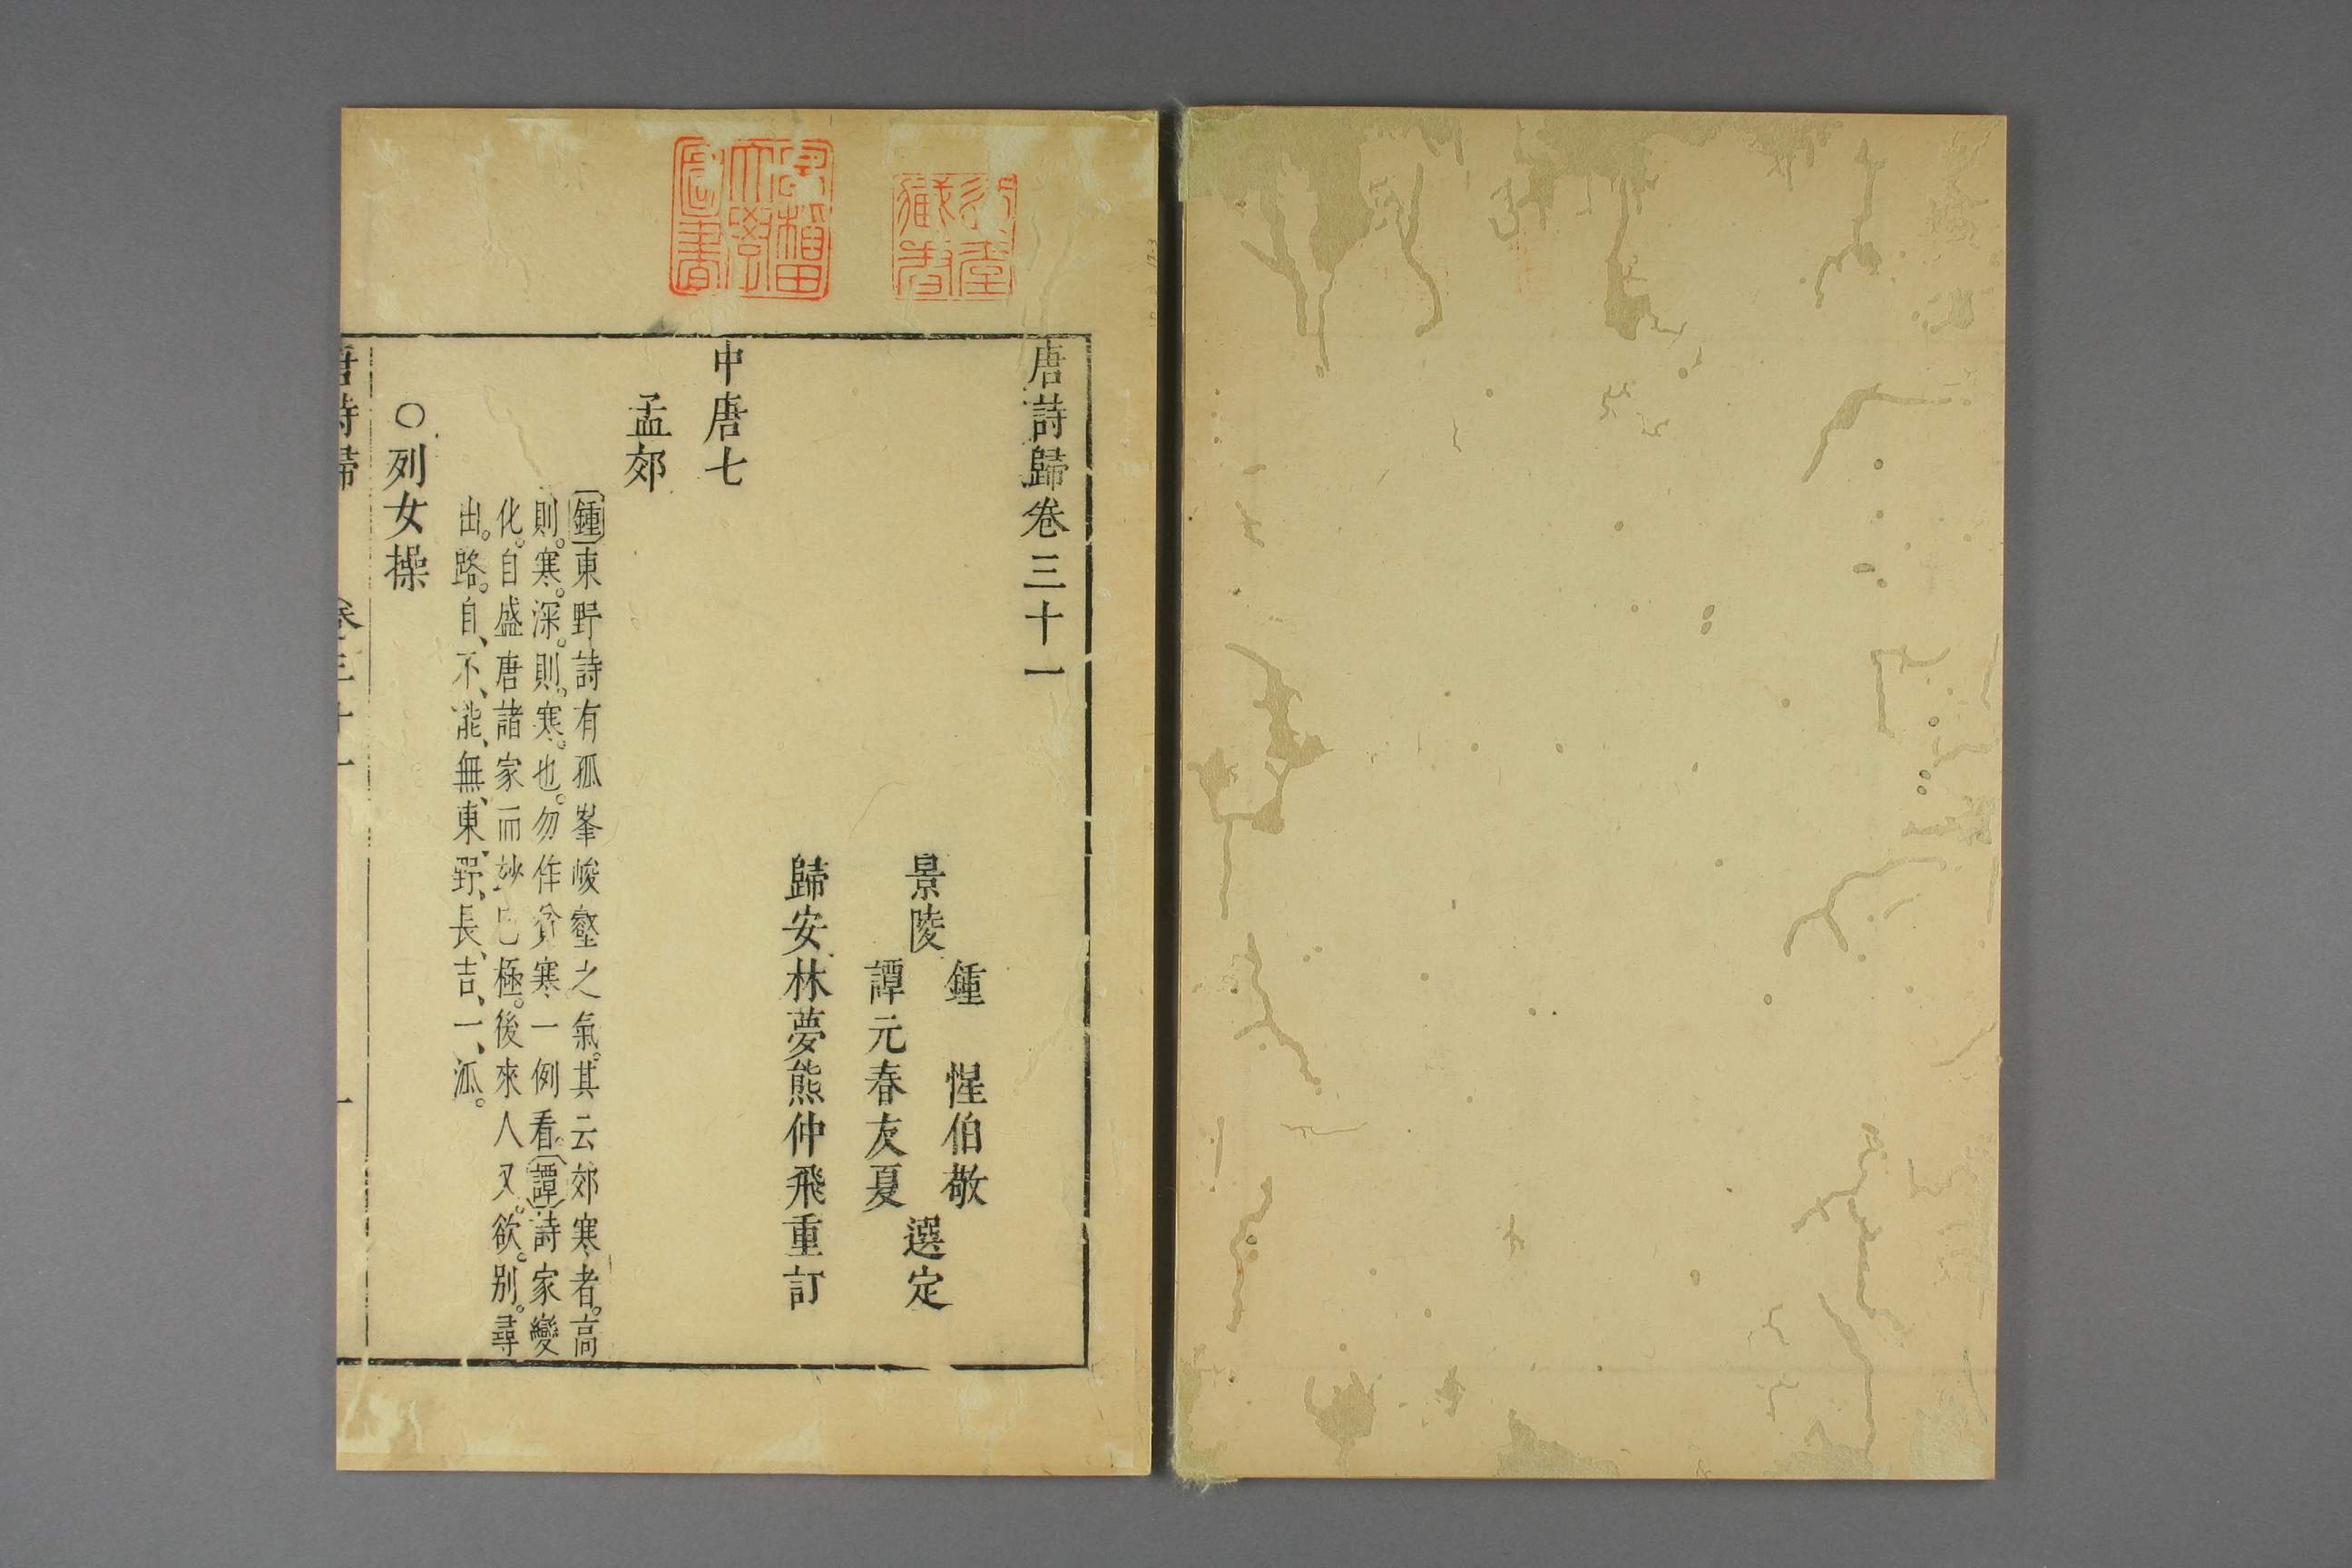 唐詩歸卷三十一
景陵
鍾　惺伯敬
譚元春友夏
選定
歸安林夢熊仲飛重訂
中唐七
孟郊
鍾東野詩有孤峯峻壑之氣。其云郊寒者。高
則。寒。深。則。寒。也。勿作貧寒一例看。譚詩家變
化。自盛唐諸家而妙已極。後來人又。欲。別。尋
出。路。自、不、能、無、東、野、長、吉、一、派。
○列女操
唐詩歸　卷三十一　一
早稻田大學圖書